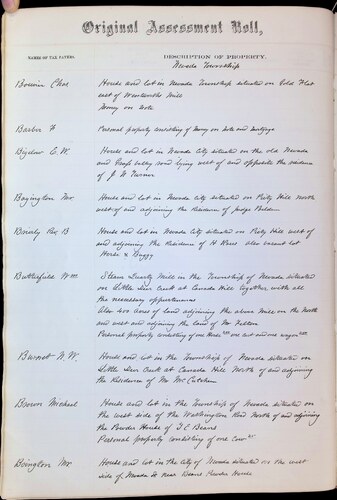 Original Assessment Roll,
NAMES OF TAX PAYERS.
DESCRIPTION OF PROPERTY.
Nevada Township
Bowin Chas
House and lot in Nevada Township situated on Gold Flat
east of Wentworths Mill
Money on note
Barber F
Personal property consisting of Money on note and mortgage
Bigelow E. W.
House and lot in Nevada City situated on the old Nevada
and Grass valley road lying west of and opposite the residence
of J. N. Turner
House and lot in Nevada City situated on Piety Hill north
west of and adjoining the Residence of Judge Belden
B
House and lot in Nevada City situated on Piety Hill west of
and adjoining the Residence of also vacant lot
Horse & Buggy
Butterfield Wm
Steam Quartz Mill in the Township of Nevada situated
on Little Deer Creek at Canada Hill together with all
the necessary appurtenances
Also 400 acres of land adjoining the above mill on the North
and west and adjoining the land of Mr
Personal property consisting of one cart and one wagon
N. W.
House and lot in the Township of Nevada situated on
Little Deer Creek at Canada Hill North of and adjoining
the Residence of Mr McCutchen
Brown Michael
House and lot in the Township of Nevada situated on
the west side of the Washington Road North of and adjoining
the Powder House of
Personal property consisting of one Cow
Boington Mr.
House and lot in the City of Nevada situated on the west
side of Nevada St near Powder House